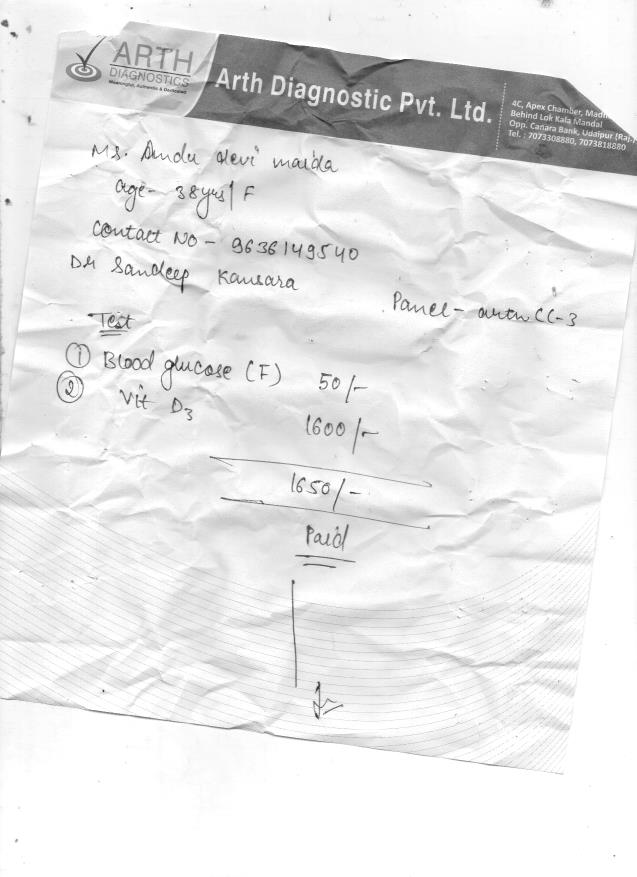 ARTH
DIAGNOSTICS
Meaningful, Authentic & Dedicated
Arth Diagnostic Pvt. Ltd.
4C, Apex Chamber,
Behind Lok Kala Mandal
Opp. Canara Bank, Udaipur (Raj.)
Tel. : 7073308880, 7073818880
Ms. Andu devi maida
age- 38yrs/F
Contact No - 9636149540
Dr Sandeep Kansara
Panel - CC-3
Test
① Blood glucose (F) 50/-
② Vit D3 1600/-
1650/-
Paid